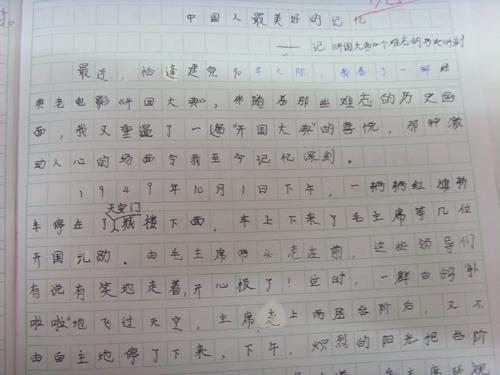 中国人最美好的记忆
——记《开国大典》个难忘的历史时刻
最近，恰逢建党90年之际，我看了一部经
典老电影《开国大典》，伴随着那些难忘的历史画
面，我又重温了一遍“开国大典”的喜悦，那种激
动人心的场面令我至今记忆深刻。
1949年10月1日下午，一辆辆红旗轿
车停在了天安门城楼下面，车上下来了毛主席等几位
开国元勋。由毛主席 走在前，这些领导们
有说有笑地走着，开心极了！这时，一群白鸽“扑
啦啦”地飞过天空，主席走上两层台阶后，又不
由自主地停了下来，下午，炽烈的阳光把台阶
主席环视